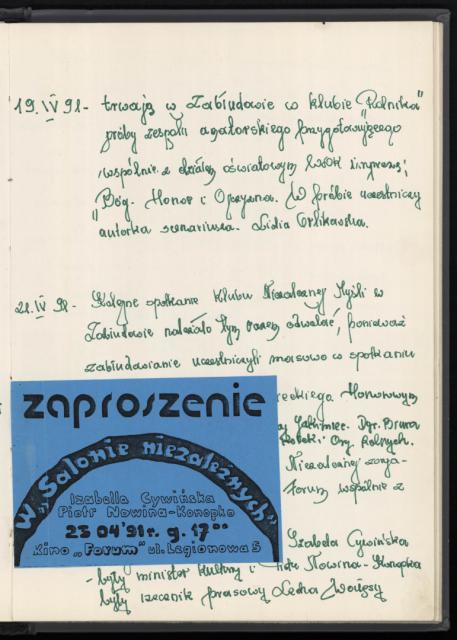 19.IV 91 - trwają w Zabłudowie w klubie „Rolnika”
próby zespołu amatorskiego przygotowującego
wspólnie z działem oświatowym WDK imprezę:
„Bóg, Honor i Ojczyzna. W próbie uczestniczy
autorka scenariusza - Lidia Orlikowska.
21.IV 91 - Kolejne spotkanie Klubu Niezależnej Myśli w
Zabłudowie należało tym razem odwołać, ponieważ
zabłudowianie uczestniczyli masowo w spotkaniu
Honorowym
zaproszenie
W „Salonie niezależnych”
Izabella Cywińska
Piotr Nowina-Konopko
23 04'91r. g. 17⁰⁰
Kino „Forum” ul. Legionowa 5
Dyr. Biura
Org. Rolnych.
Niezależnej
Forum wspólnie z
Izabela Cywińska
- były minister kultury i Nowina - Konopka
były rzecznik prasowy Lecha Wałęsy